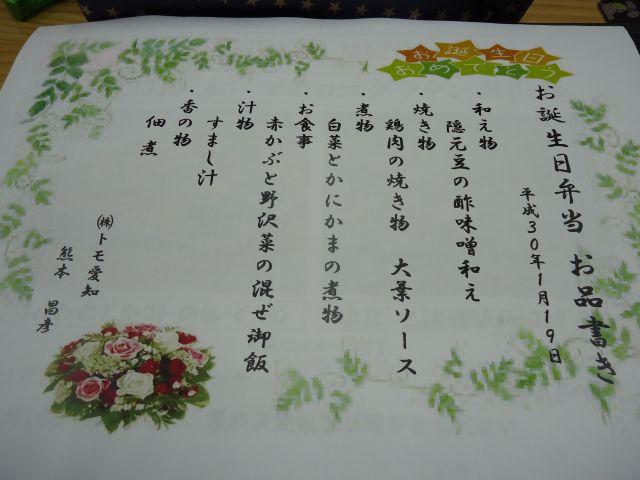 お誕生日
おめでとう
お誕生日弁当　お品書き
平成30年1月19日
・和え物
隠元豆の酢味噌和え
・焼き物
鶏肉の焼き物　大葉ソース
・煮物
白菜とかにかまの煮物
・お食事
赤かぶと野沢菜の混ぜ御飯
・汁物
すまし汁
・香の物
佃煮
㈱トモ愛知
熊本　昌彦